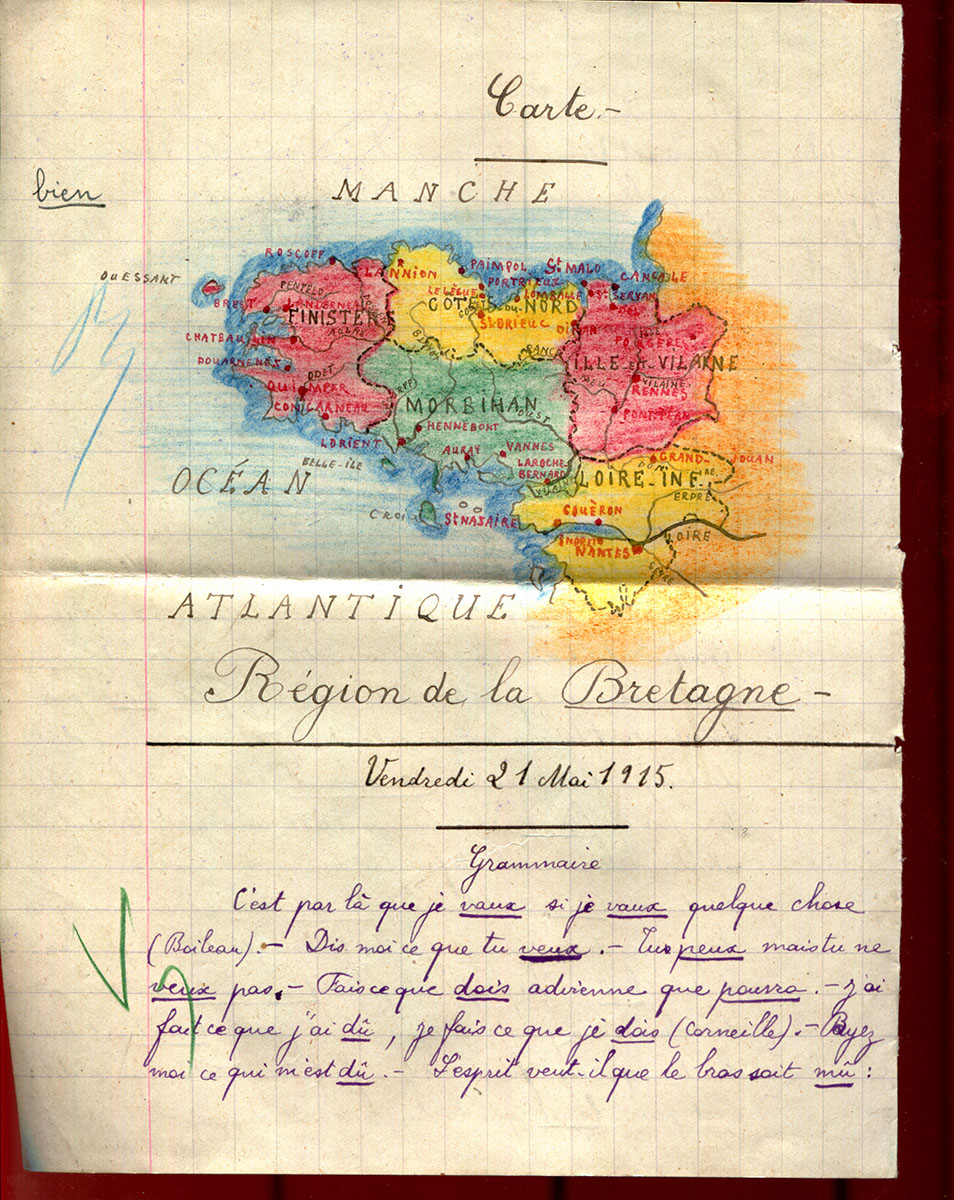 Carte.-
bien
MANCHE
OUESSANT
ROSCOFF
LANNION
PAIMPOL
St MALO
CANCALE
PORTRIEUX
LE LÉGUÉ
LAMBALLE
St SERVAN
BREST
PENFELD
LANDERNEAU
FINISTÈRE
AULNE
CÔTES-DU-NORD
St BRIEUC
DINAN
DOL
RANCE
FOUGÈRES
CHATEAULIN
DOUARNENEZ
ODET
QUIMPER
CONCARNEAU
ILLE et VILAINE
VILAINE
RENNES
PONT-PÉAN
MORBIHAN
OUST
HENNEBONT
LORIENT
BELLE-ILE
AURAY
VANNES
LAROCHE-
BERNARD
GRAND-JOUAN
OCÉAN
LOIRE-INFRE.
ERDRE
CROI
St NAZAIRE
COUËRON
INDRET
NANTES
LOIRE
SÈVRE
ATLANTIQUE
Région de la Bretagne-
Vendredi 21 Mai 1915.
Grammaire
C'est par là que je vaux si je vaux quelque chose
(Boileau).- Dis moi ce que tu veux.- Tu peux mais tu ne
veux pas.- Fais ce que dois advienne que pourra.- J'ai
fait ce que j'ai dû, je fais ce que je dois (Corneille).- Payez
moi ce qui m'est dû.- L'esprit veut-il que le bras soit mû :